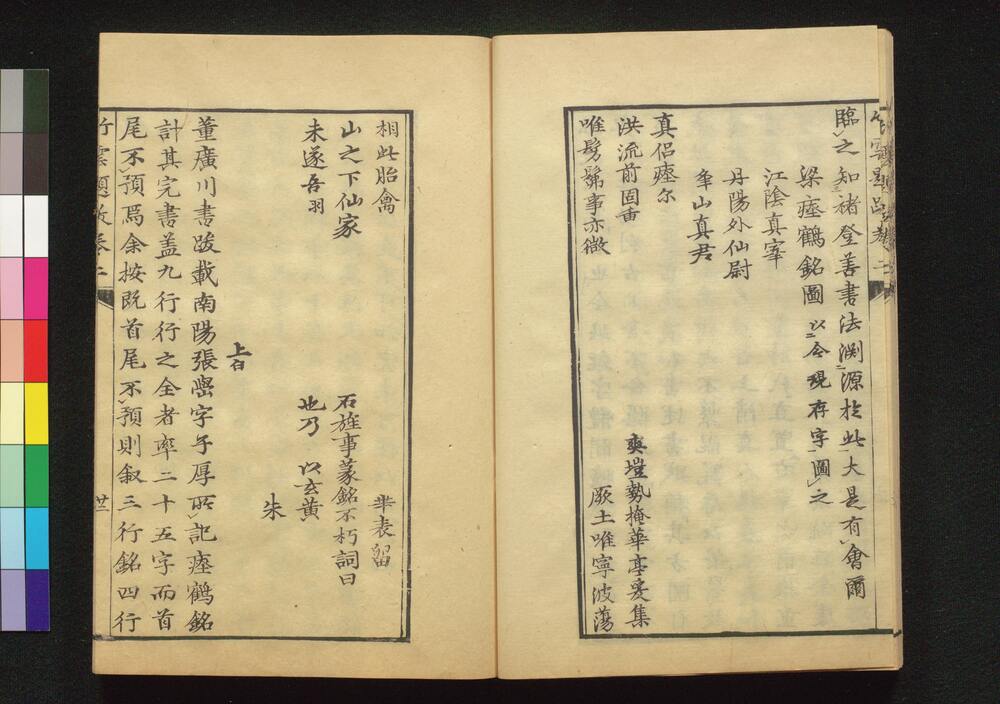 臨之知褚登善書法淵源於此大是有會爾
梁瘞鶴銘圖 以今現存字圖之
江陰真宰
丹陽外仙尉
夅山真君
真侶瘞尔
爽塏勢掩華亭爰集
洪流前固重
厥土唯寧波蕩
唯髣髴事亦微
相此胎禽
華表留
山之下仙家
石旌事篆銘不朽詞曰
未遂吾羽
也乃 以玄黄
朱
上白
董廣川書跋載南陽張嵡字子厚所記瘞鶴銘
計其完書盖九行行之全者率二十五字而首
尾不預焉余按既首尾不預則叙三行銘四行
竹雲題跋卷二
廿二